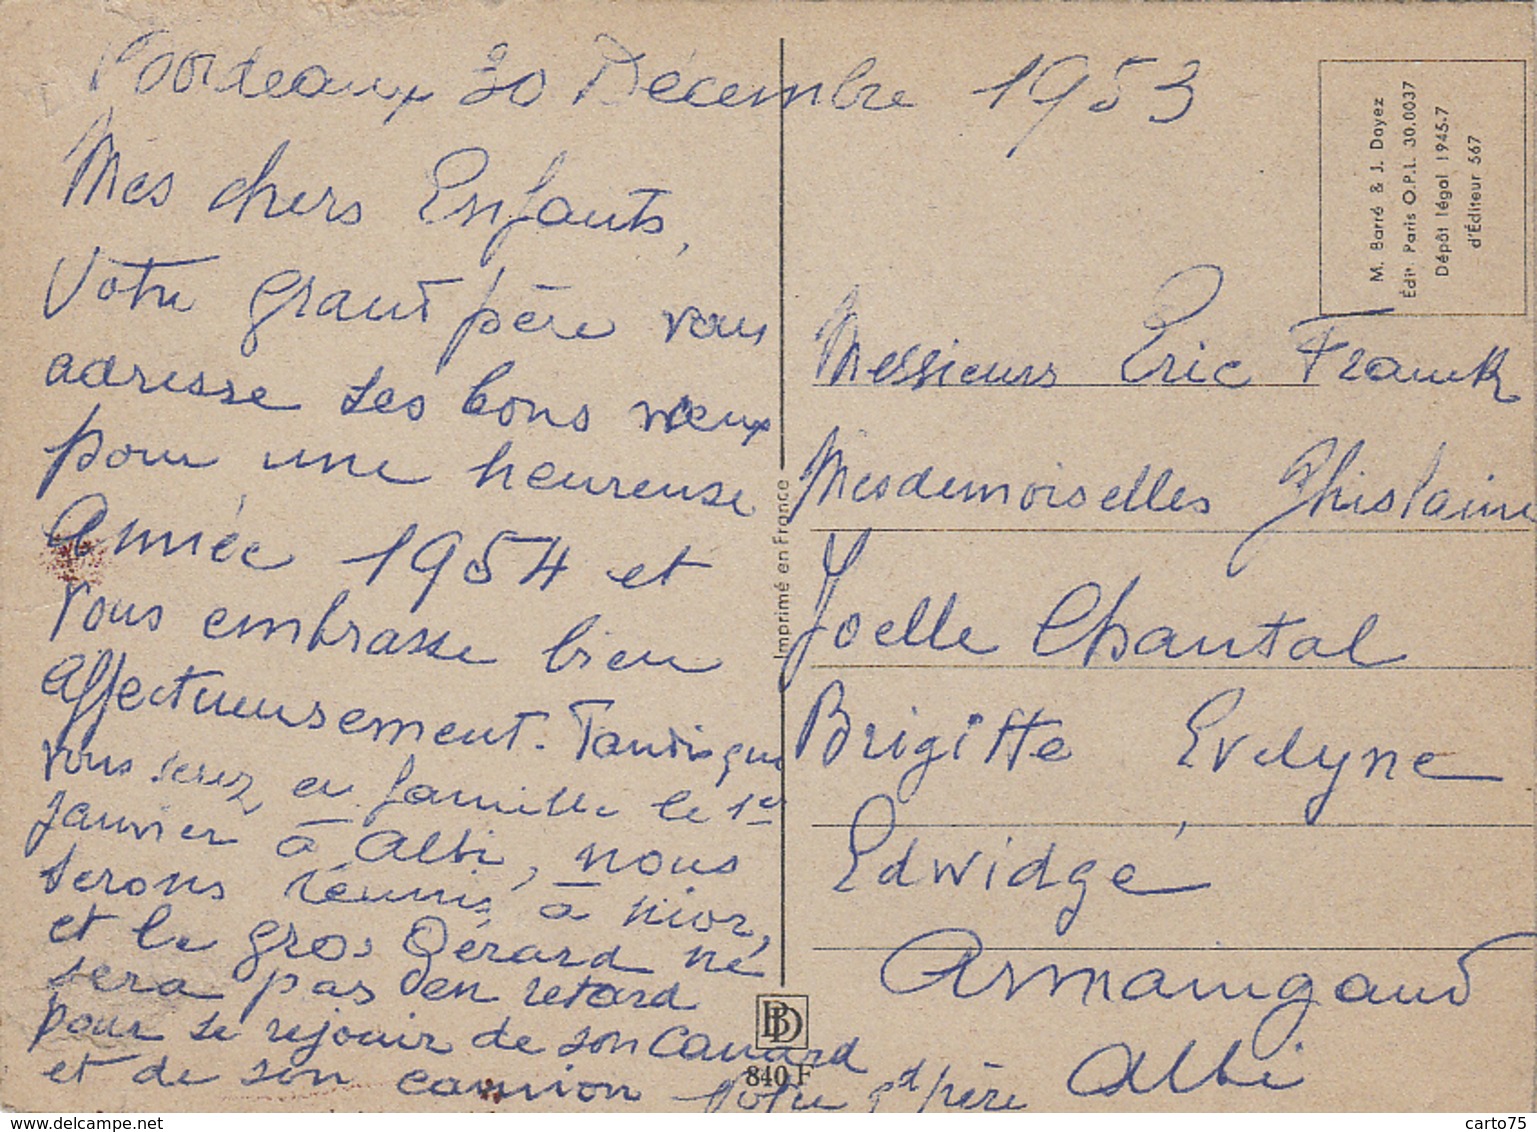 Bordeaux 30 Décembre 1953
Mes chers Enfants,
Votre grand père vous
adresse ses bons vœux
pour une heureuse
Année 1954 et
vous embrasse bien
affectueusement. Tandis que
vous serez en famille le 1er
janvier à Albi, nous
serons réunis à Niort,
et le gros Gérard ne
sera pas en retard
pour se rejouir de son canard
et de son camion Votre gd père
Imprimé en France
BD
840 F
M. Barré & J. Dayez
Édit. Paris O.P.L. 30.0037
Dépôt légal 1945-7
d'Éditeur 567
Messieurs Eric Franck
Mesdemoiselles Ghislaine
Joelle Chantal
Brigitte Evelyne
Edwidge
Armaingaud
Albi
www.delcampe.net
carto75